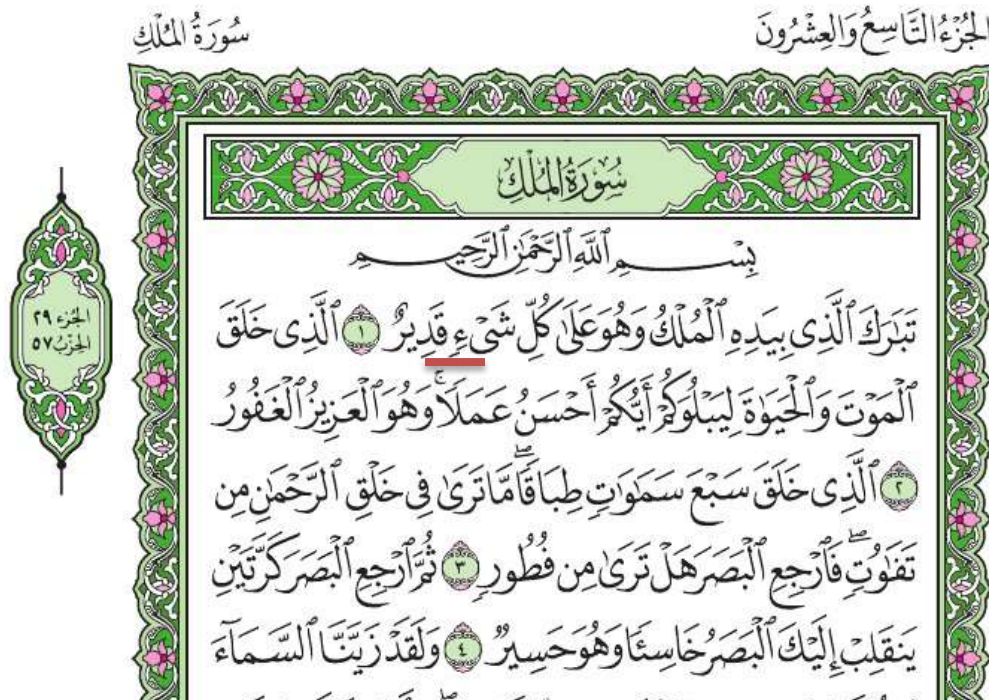 الجُزْءُ التَّاسِعُ وَالعِشْرُونَ
سُورَةُ المُلْكِ
سُورَةُ المُلْكِ
بِسْمِ ٱللَّهِ ٱلرَّحْمَٰنِ ٱلرَّحِيمِ
تَبَٰرَكَ ٱلَّذِى بِيَدِهِ ٱلْمُلْكُ وَهُوَ عَلَىٰ كُلِّ شَىْءٍ قَدِيرٌ ١ ٱلَّذِى خَلَقَ
ٱلْمَوْتَ وَٱلْحَيَوٰةَ لِيَبْلُوَكُمْ أَيُّكُمْ أَحْسَنُ عَمَلًا ۚ وَهُوَ ٱلْعَزِيزُ ٱلْغَفُورُ
٢ ٱلَّذِى خَلَقَ سَبْعَ سَمَٰوَٰتٍ طِبَاقًا ۖ مَّا تَرَىٰ فِى خَلْقِ ٱلرَّحْمَٰنِ مِن
تَفَٰوُتٍ ۖ فَٱرْجِعِ ٱلْبَصَرَ هَلْ تَرَىٰ مِن فُطُورٍ ٣ ثُمَّ ٱرْجِعِ ٱلْبَصَرَ كَرَّتَيْنِ
يَنقَلِبْ إِلَيْكَ ٱلْبَصَرُ خَاسِئًا وَهُوَ حَسِيرٌ ٤ وَلَقَدْ زَيَّنَّا ٱلسَّمَآءَ
الجُزء ٢٩
الحِزْبُ ٥٧